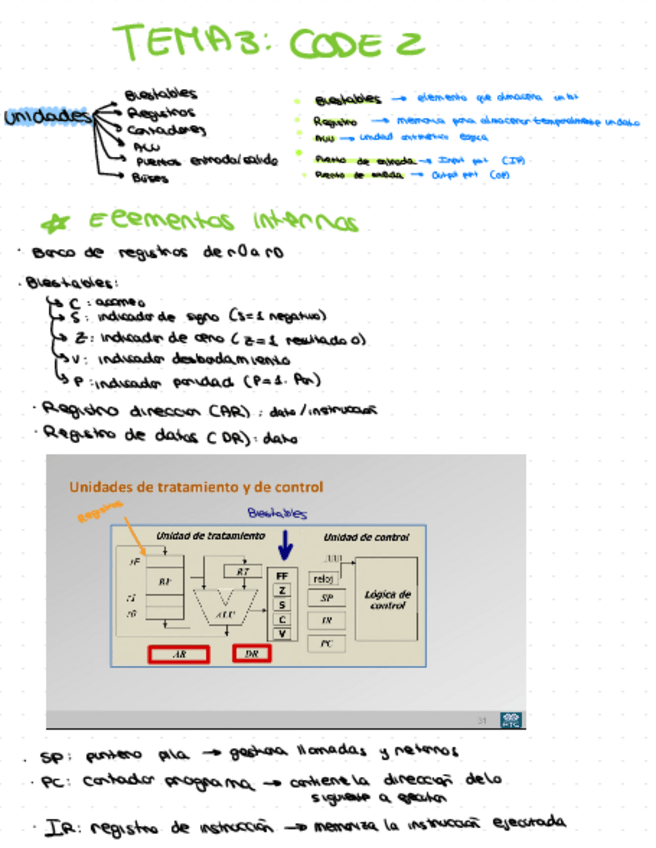 TEMA 3: CODE 2
Unidades
Biestables
Registros
Contadores
ALU
Puertos entrada/salida
Buses
Biestables → elemento que almacena un bit
Registro → memoria para almacenar temporalmente un dato
ALU → unidad aritmético lógica
Puerto de entrada → Input port (IP)
Puerto de salida → Output port (OP)
☆ Elementos internos
· Banco de registros de r0 a r0
· Biestables:
C : acarreo
S : indicador de signo (S=1 negativo)
Z : indicador de cero (Z=1 resultado 0)
V : indicador desbordamiento
P : indicador paridad (P=1. Par)
· Registro direccion (AR) : dato/instrucción
· Registro de datos (DR) : dato
Unidades de tratamiento y de control
Registros
Biestables
Unidad de tratamiento
Unidad de control
rF
RF
r1
r0
RT
ALU
FF
Z
S
C
V
reloj
SP
IR
PC
Lógica de
control
AR
DR
31
· SP: puntero pila → gestiona llamadas y retornos
· PC: contador programa → contiene la dirección de lo
siguiente a ejecutar
· IR: registro de instrucción → memoriza la instrucción ejecutada